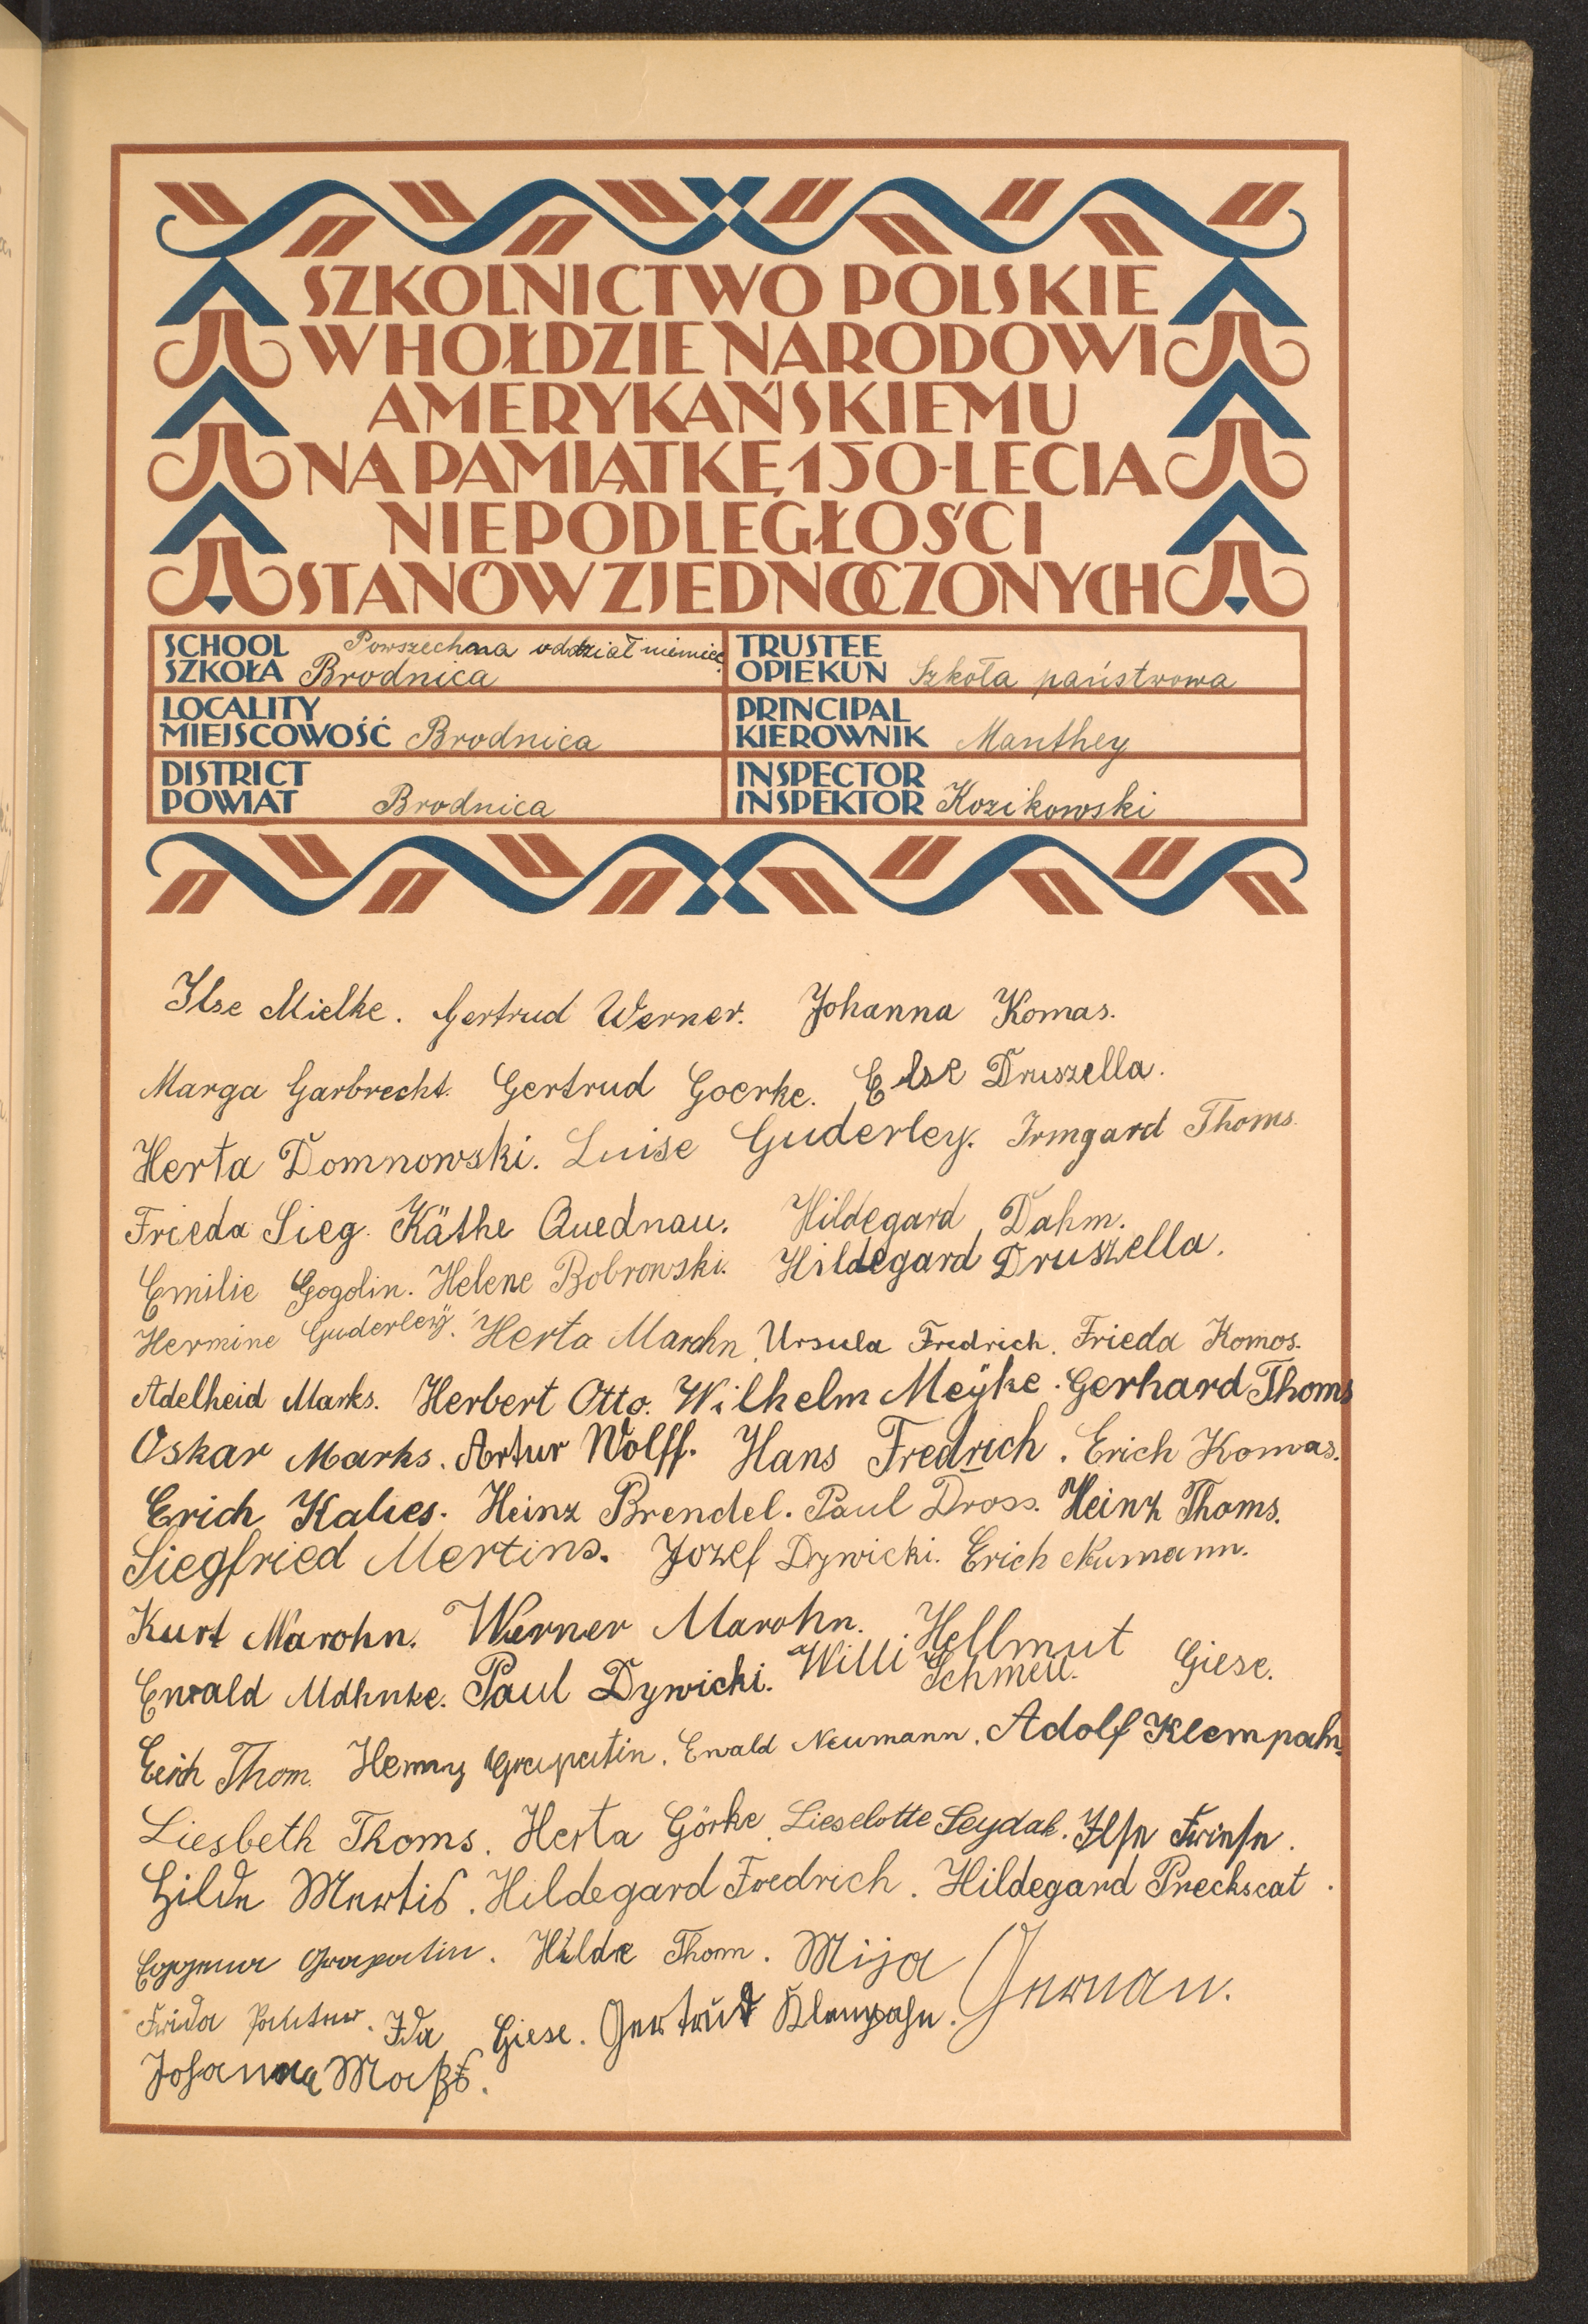 SZKOLNICTWO POLSKIE
W HOŁDZIE NARODOWI
AMERYKAŃSKIEMU
NA PAMIĄTKĘ 150-LECIA
NIEPODLEGŁOŚCI
STANÓW ZJEDNOCZONYCH
SCHOOL Powszechna oddział niemiec.
SZKOŁA Brodnica
TRUSTEE
OPIEKUN Szkoła państwowa
LOCALITY
MIEJSCOWOŚĆ Brodnica
PRINCIPAL
KIEROWNIK Manthey
DISTRICT
POWIAT Brodnica
INSPECTOR
INSPEKTOR Kozikowski
Ilse Mielke. Gertrud Werner. Johanna Komas.
Marga Garbrecht. Gertrud Goerke. Else Druszella.
Herta Domnowski. Luise Guderley. Irmgard Thoms.
Frieda Sieg. Käthe Quednau. Hildegard Dahm.
Emilie Gogolin. Helene Bobrowski. Hildegard Druszella.
Hermine Guderleÿ. Herta Marohn. Ursula Fredrich. Frieda Komos.
Adelheid Marks. Herbert Otto. Wilhelm Meÿke. Gerhard Thoms
Oskar Marks. Artur Wolff. Hans Fredrich. Erich Komas.
Erich Kalies. Heinz Brendel. Paul Dross. Heinz Thoms.
Siegfried Mertins. Jozef Dywicki. Erich Numann.
Kurt Marohn. Werner Marohn. Hellmut Giese.
Ewald Mahnke. Paul Dywicki. Willi Schmell.
Erich Thom. Henry Grapatin. Ewald Neumann. Adolf Klempahn.
Liesbeth Thoms. Herta Görke. Lieselotte Seydak. Ilse Friese.
Hilde Mertis. Hildegard Fredrich. Hildegard Preckscat.
Grapatin. Hilde Thom. Mija German.
Frida Ida Giese. Gertrud Klempahn.
Johanna